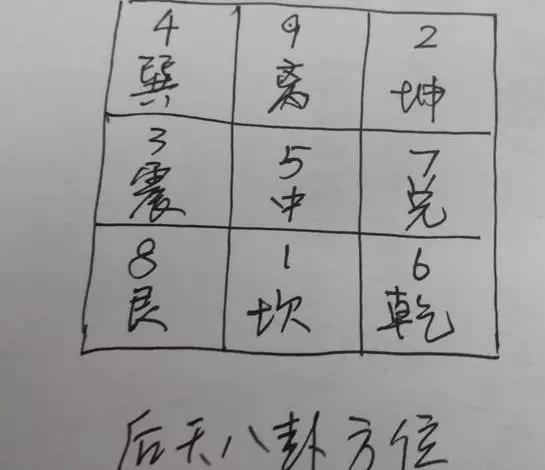 4 9 2
巽 离 坤
3 5 7
震 中 兑
8 1 6
艮 坎 乾
后天八卦方位